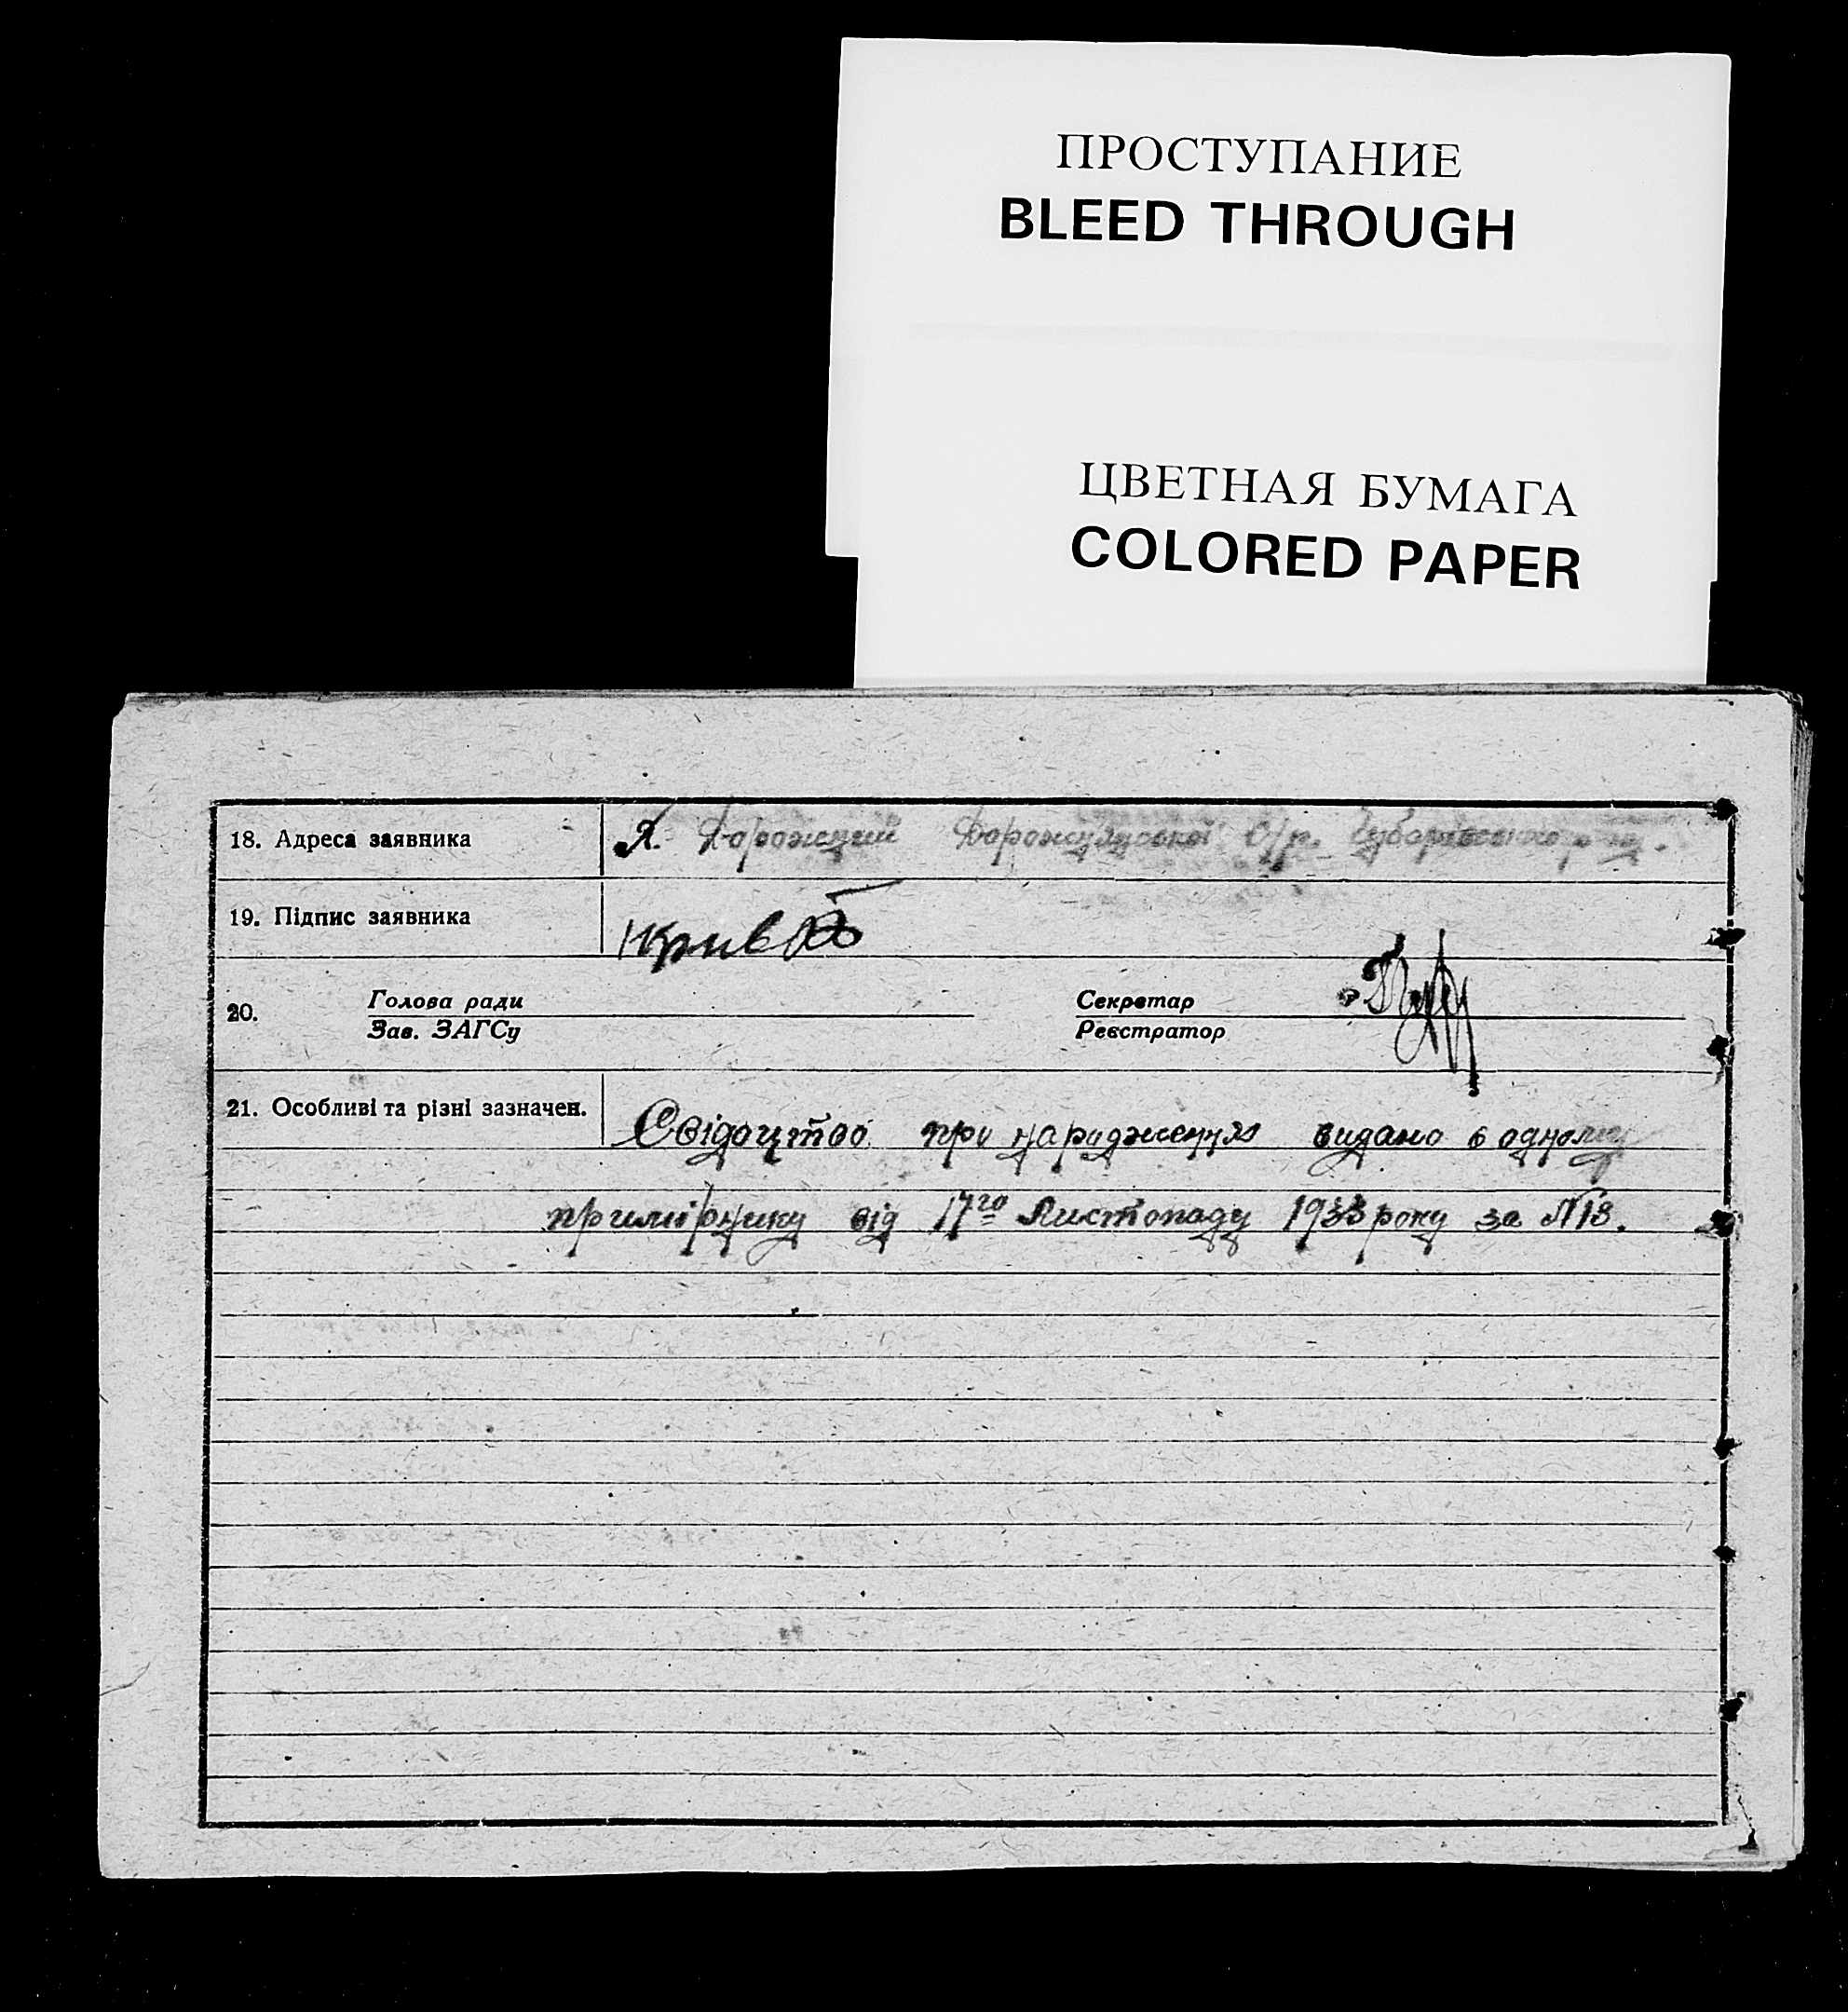 ПРОСТУПАНИЕ
BLEED THROUGH
ЦВЕТНАЯ БУМАГА
COLORED PAPER
18. Адреса заявника
19. Підпис заявника
20. Голова ради Секретар
Зав. ЗАГСу Реєстратор
21. Особливі та різні зазначен. Свідоцтво при народження видано в одному
примірнику від 17го Листопаду 1933 року за №18.